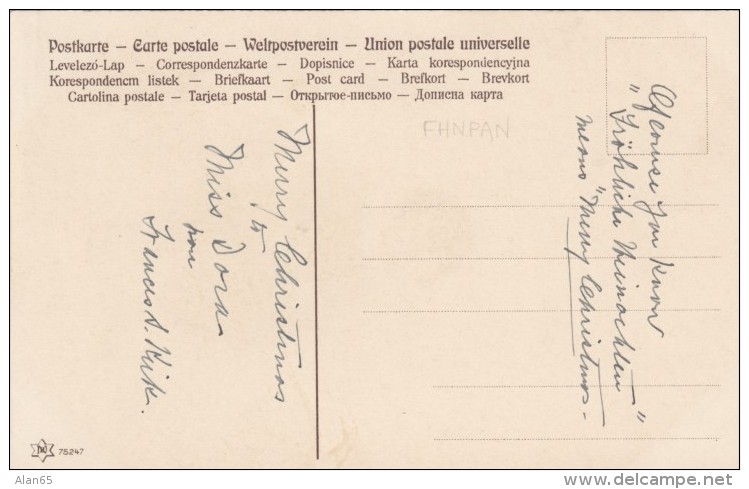 Postkarte – Carte postale – Weltpostverein – Union postale universelle
Levelező-Lap – Correspondenzkarte – Dopisnice – Karta korespondencyjna
Korespondencm listek – Briefkaart – Post card – Brefkort – Brevkort
Cartolina postale – Tarjeta postal – Открытое-письмо – Дописна карта
FHNPAN
Merry Christmas
to
Miss Dora
from
Frances S. Kirk.
Of course you know
"Fröhliche Weinachten"
means "Merry Christmas-
75247
Alan65
www.delcampe.net